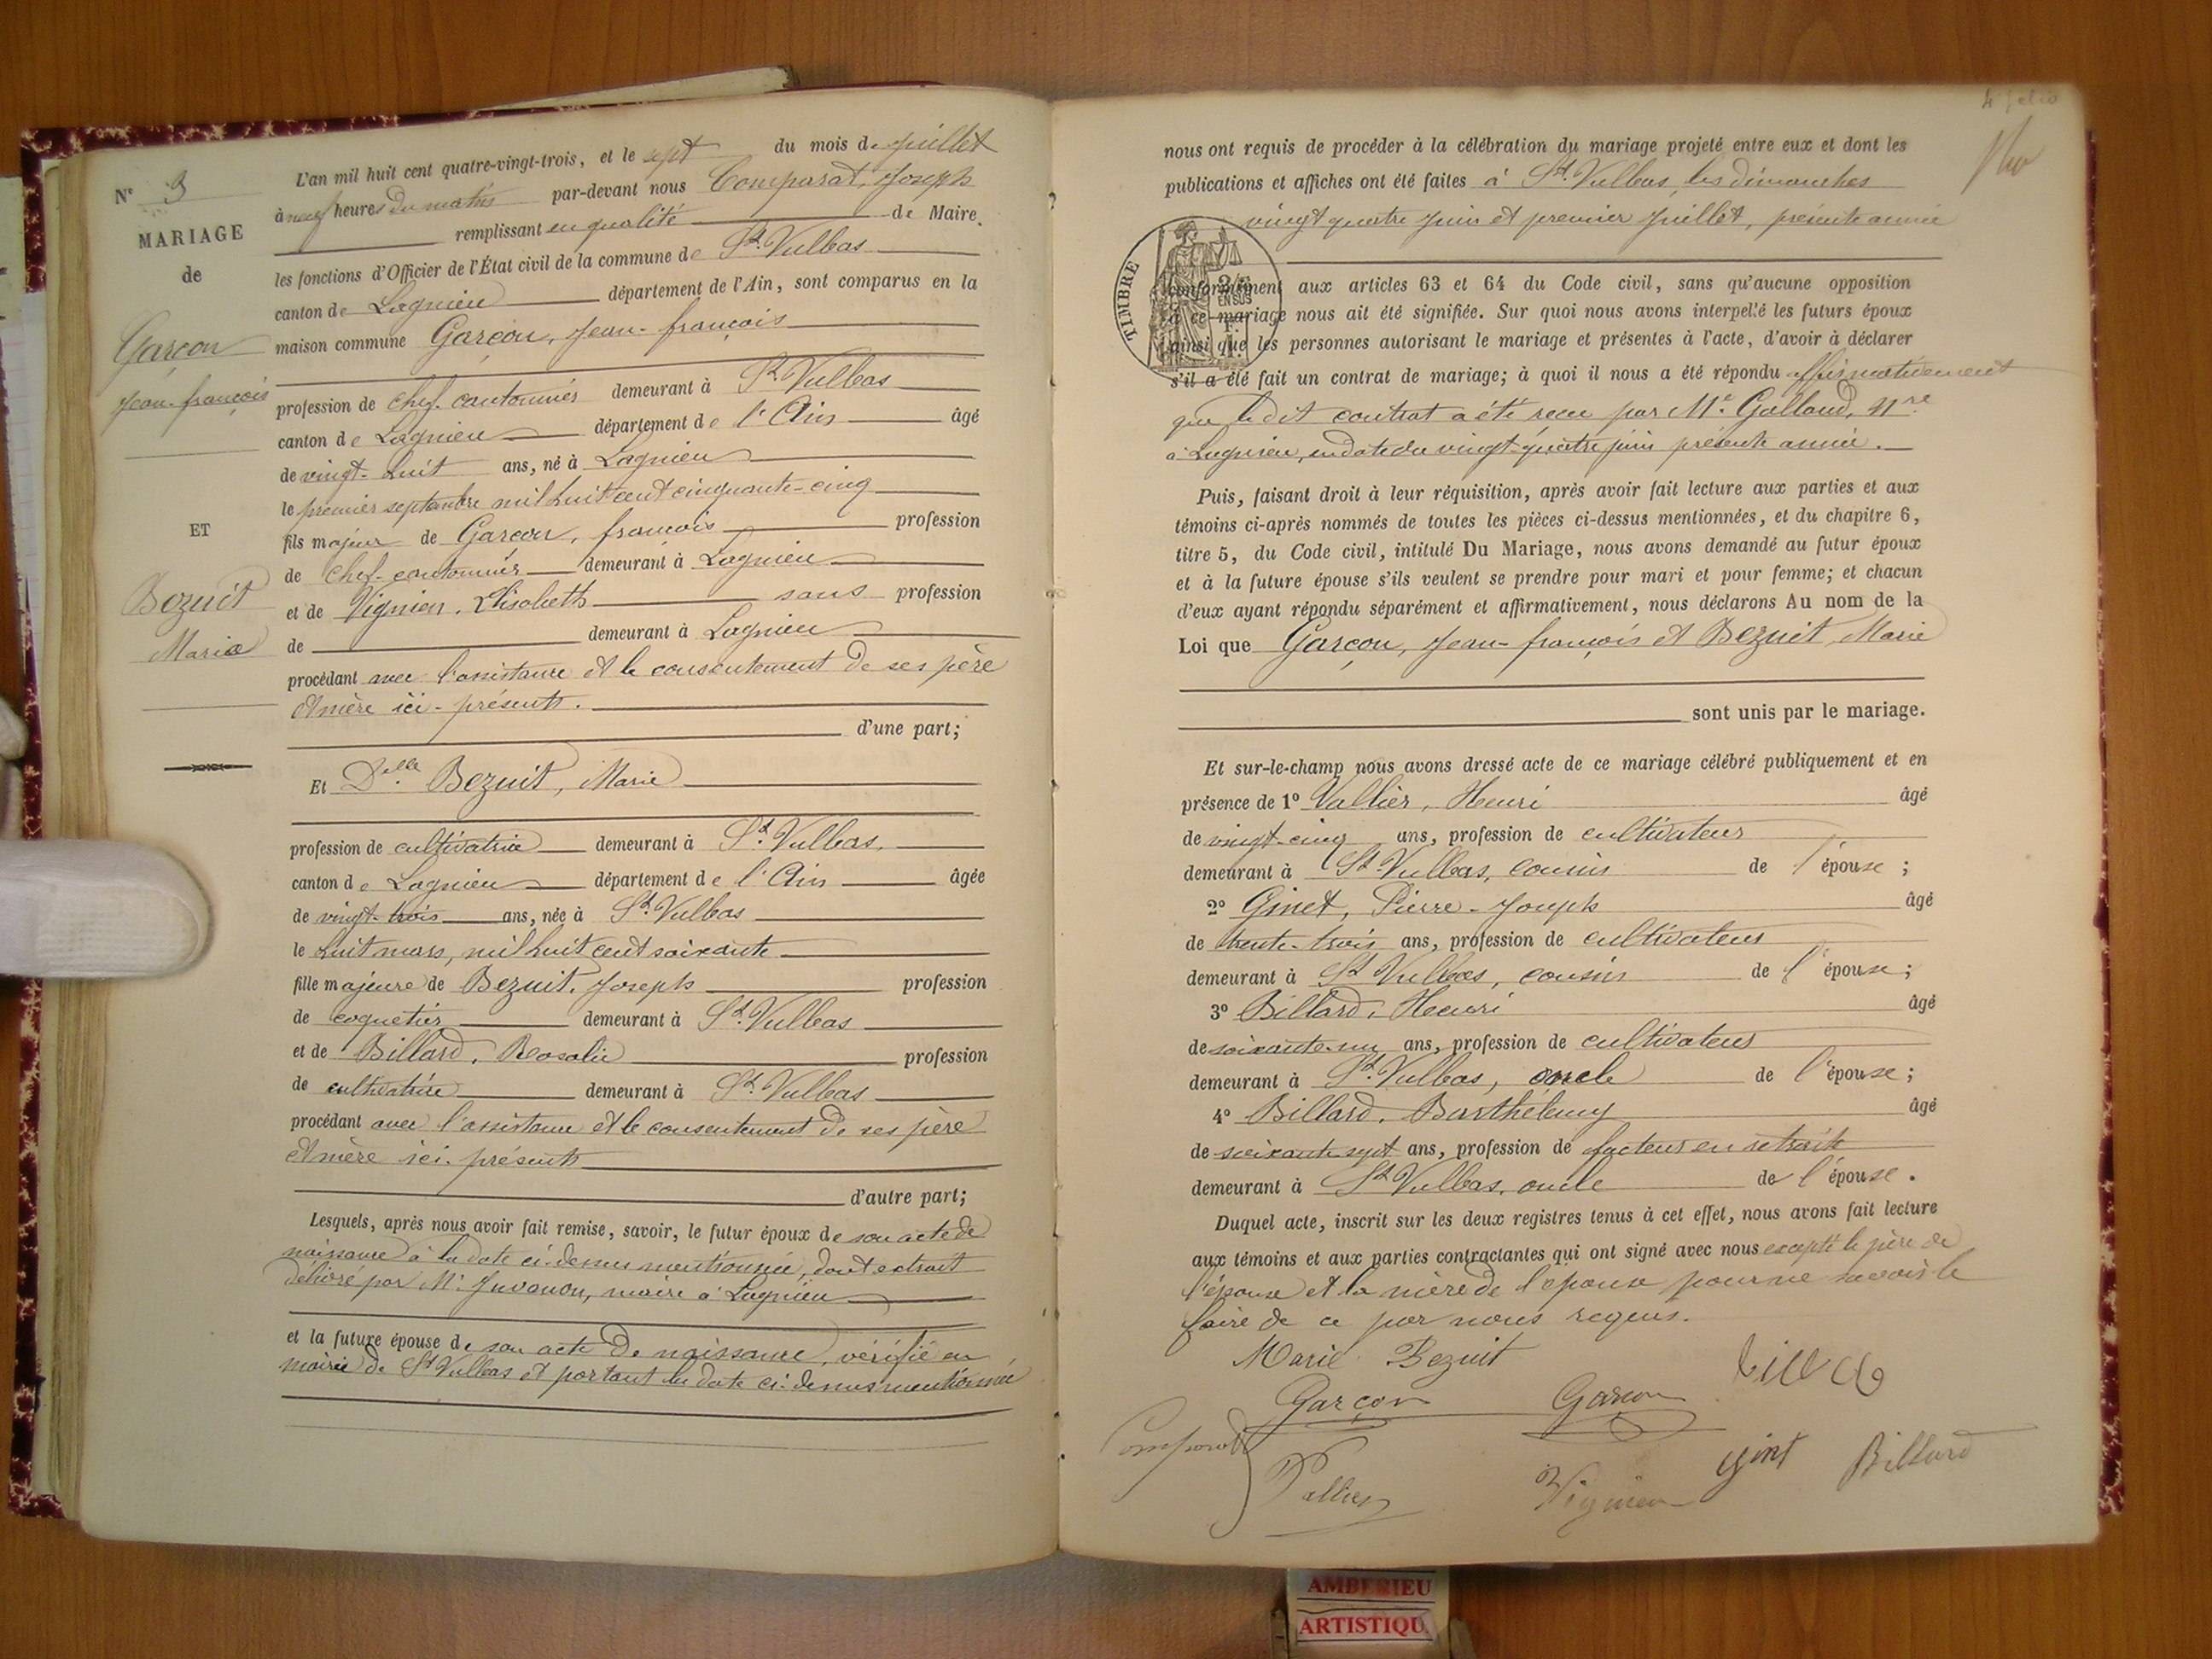 N° 3
MARIAGE
de
Garçon
Jean-françois
ET
Bezuit
Marie
L'an mil huit cent quatre-vingt-trois, et le sept du mois de juillet
à neuf heures du matin par-devant nous Comparat, Joseph
remplissant en qualité de Maire.
les fonctions d'Officier de l'État civil de la commune de St. Vulbas
canton de Lagnieu département de l'Ain, sont comparus en la
maison commune Garçon, Jean-françois
profession de chef-cantonnier demeurant à St. Vulbas
canton de Lagnieu département de l'Ain âgé
de vingt-huit ans, né à Lagnieu
le premier septembre mil huit cent cinquante-cinq
fils majeur de Garçon, françois profession
de chef-cantonnier demeurant à Lagnieu
et de Vignier, Elisabeth sans profession
de demeurant à Lagnieu
procédant avec l'assistance et le consentement de ses père
et mère ici-présents.
d'une part;
Et Delle Bezuit, Marie
profession de cultivatrice demeurant à St. Vulbas.
canton de Lagnieu département de l'Ain âgée
de vingt-trois ans, née à St. Vulbas
le huit mars, mil huit cent soixante
fille majeure de Bezuit, Joseph profession
de coquetier demeurant à St. Vulbas
et de Billard, Rosalie profession
de cultivatrice demeurant à St. Vulbas
procédant avec l'assistance et le consentement de ses père
et mère ici-présents
d'autre part;
Lesquels, après nous avoir fait remise, savoir, le futur époux de son acte de
naissance à la date ci-dessus mentionnée, dont extrait
délivré par Mr. Juvanon, maire à Lagnieu
et la future épouse de son acte de naissance, vérifié en
mairie de St Vulbas et portant la date ci-dessus mentionnée
4 folio
nous ont requis de procéder à la célébration du mariage projeté entre eux et dont les
publications et affiches ont été faites à St. Vulbas, les dimanches
vingt quatre juin et premier juillet, présente année
TIMBRE
2/10 EN SUS
conformément aux articles 63 et 64 du Code civil, sans qu'aucune opposition
à ce mariage nous ait été signifiée. Sur quoi nous avons interpellé les futurs époux
ainsi que les personnes autorisant le mariage et présentes à l'acte, d'avoir à déclarer
s'il a été fait un contrat de mariage; à quoi il nous a été répondu affirmativement
que ledit contrat a été reçu par Me. Galland, Nre
à Lagnieu, en date du vingt-quatre juin présente année.
Puis, faisant droit à leur réquisition, après avoir fait lecture aux parties et aux
témoins ci-après nommés de toutes les pièces ci-dessus mentionnées, et du chapitre 6,
titre 5, du Code civil, intitulé Du Mariage, nous avons demandé au futur époux
et à la future épouse s'ils veulent se prendre pour mari et pour femme; et chacun
d'eux ayant répondu séparément et affirmativement, nous déclarons Au nom de la
Loi que Garçon, Jean-françois et Bezuit, Marie
sont unis par le mariage.
Et sur-le-champ nous avons dressé acte de ce mariage célébré publiquement et en
présence de 1° Vallier, Henri âgé
de vingt-cinq ans, profession de cultivateur
demeurant à St. Vulbas, cousin de l'épouse;
2° Ginet, Pierre-Joseph âgé
de trente-trois ans, profession de cultivateur
demeurant à St. Vulbas, cousin de l'épouse;
3° Billard, Henri âgé
de soixante-un ans, profession de cultivateur
demeurant à St. Vulbas, oncle de l'épouse;
4° Billard, Barthélemy âgé
de soixante-sept ans, profession de facteur en retraite
demeurant à St. Vulbas, oncle de l'épouse.
Duquel acte, inscrit sur les deux registres tenus à cet effet, nous avons fait lecture
aux témoins et aux parties contractantes qui ont signé avec nous excepté le père de
l'épouse et la mère de l'épouse pour ne savoir le
faire de ce par nous requis.
Marie Bezuit
Garçon Garçon
Comparat
Vallier Vignier ginet Billard
AMBERIEU
ARTISTIQU